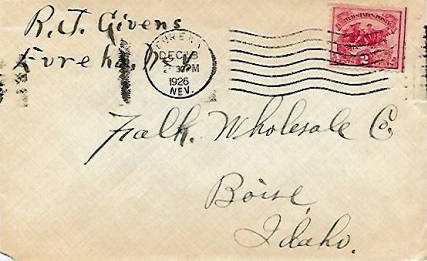 R. J. Givens
Eureka, Nev
EUREKA
DEC
PM
1926
NEV.
2
Falk Wholesale C.
Boise,
Idaho.